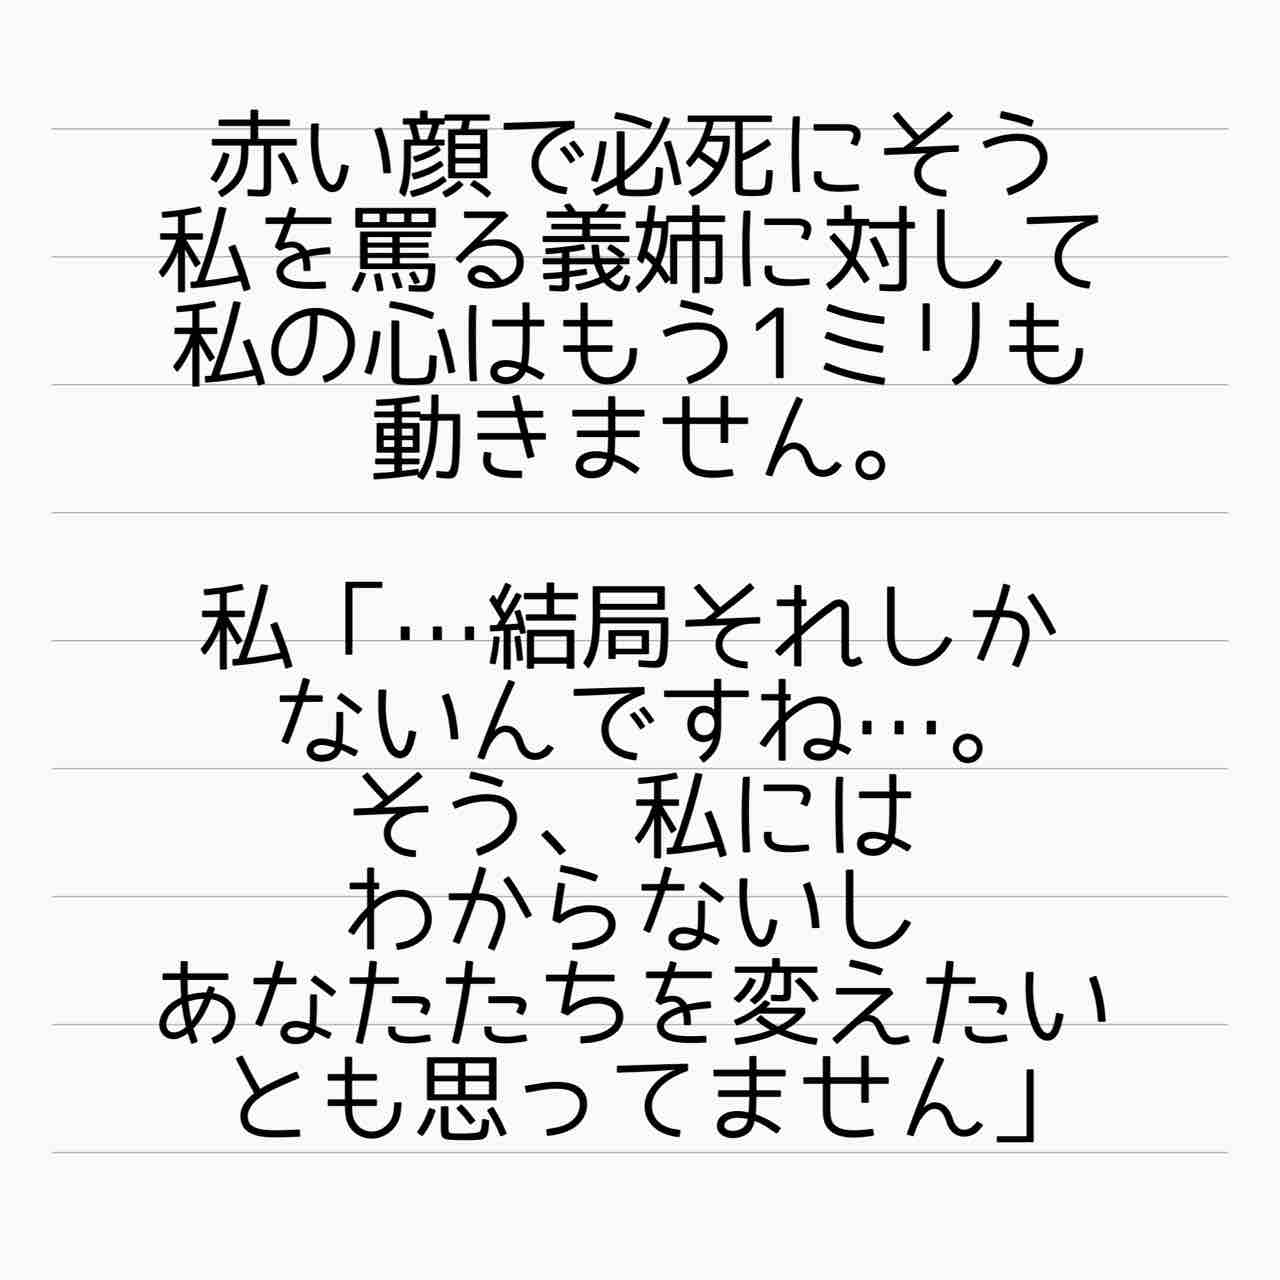 赤い顔で必死にそう
私を罵る義姉に対して
私の心はもう1ミリも
動きません。
私「…結局それしか
ないんですね…。
そう、私には
わからないし
あなたたちを変えたい
とも思ってません」